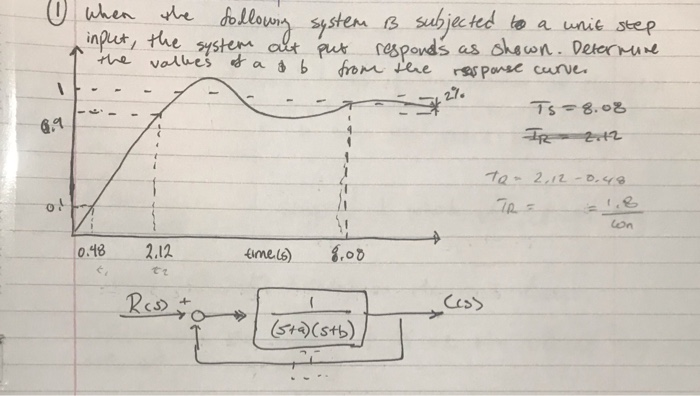 ① When the following system is subjected to a unit step
input, the system out put responds as shown. Determine
the values of a & b from the response curve.
2%
1
Ts = 8.08
0.9
TR = 2.12
TR = 2.12 - 0.48
TR = = 1.8
ωn
0.1
0.48 2.12 time(s) 8.08
t1 t2
R(s) + 1 C(s)
(s+a)(s+b)